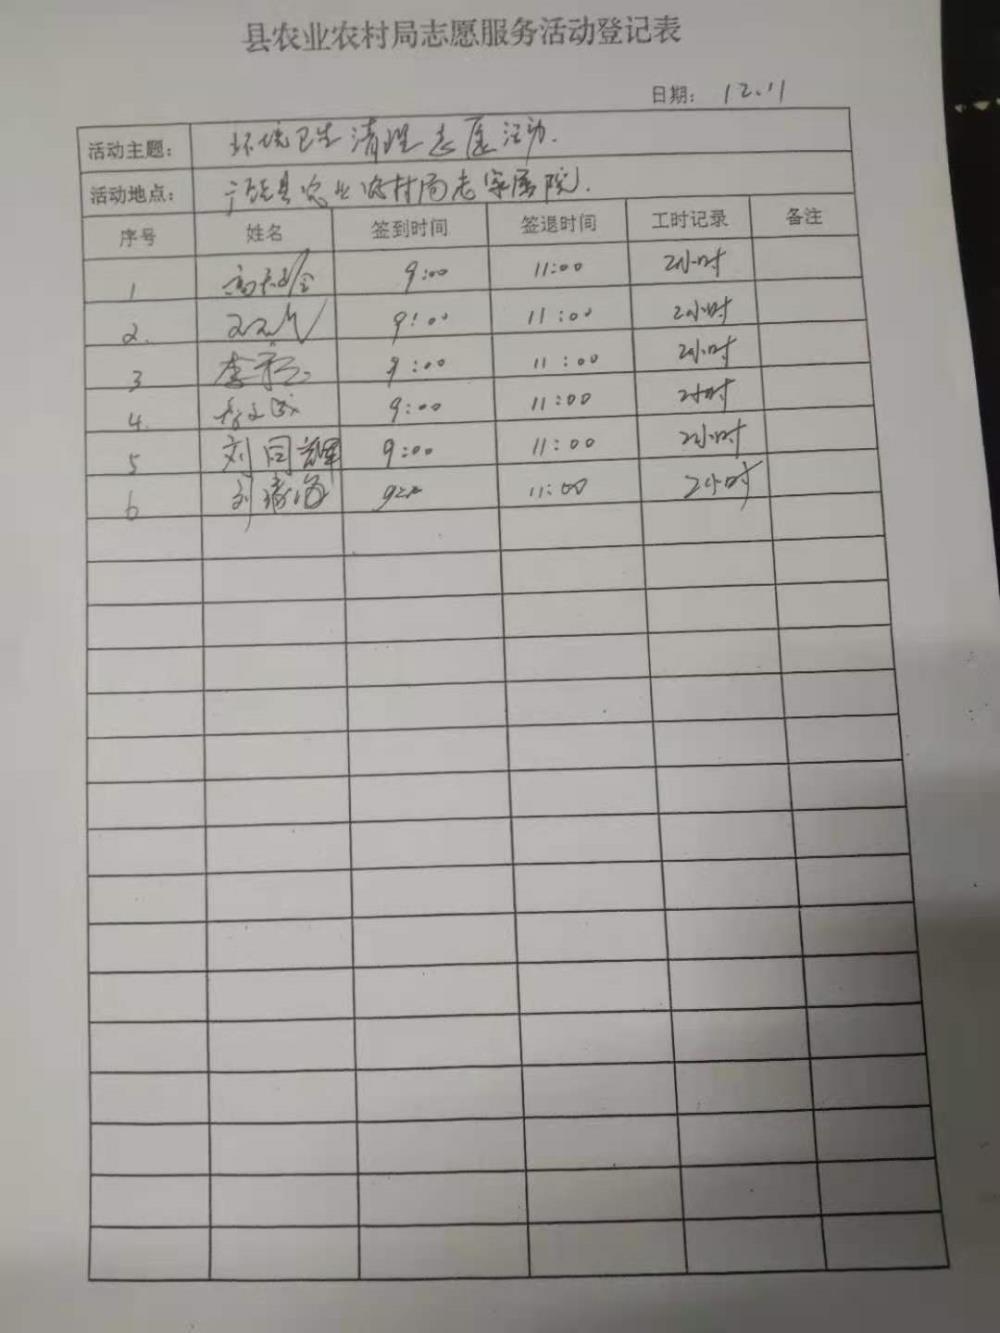 县农业农村局志愿服务活动登记表
日期： 12.11
活动主题： 环境卫生清理志愿活动.
活动地点： 县农业农村局老家属院.
序号 姓名 签到时间 签退时间 工时记录 备注
1 9:00 11:00 2小时
2. 9:00 11:00 2小时
3 李 9:00 11:00 2小时
4. 9:00 11:00 2小时
5 刘同 9:00 11:00 2小时
6 刘 9:00 11:00 2小时